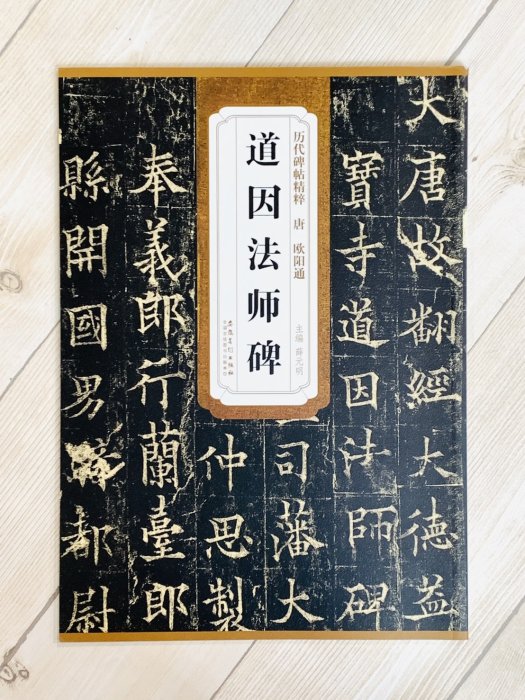 历代碑帖精粹 唐 欧阳通
道因法师碑
主编 薛元明
安徽美术出版社
大唐故翻經大德益
寶寺道因法師碑
司藩大
仲思製
奉義郎行蘭臺郎
縣開國男都尉